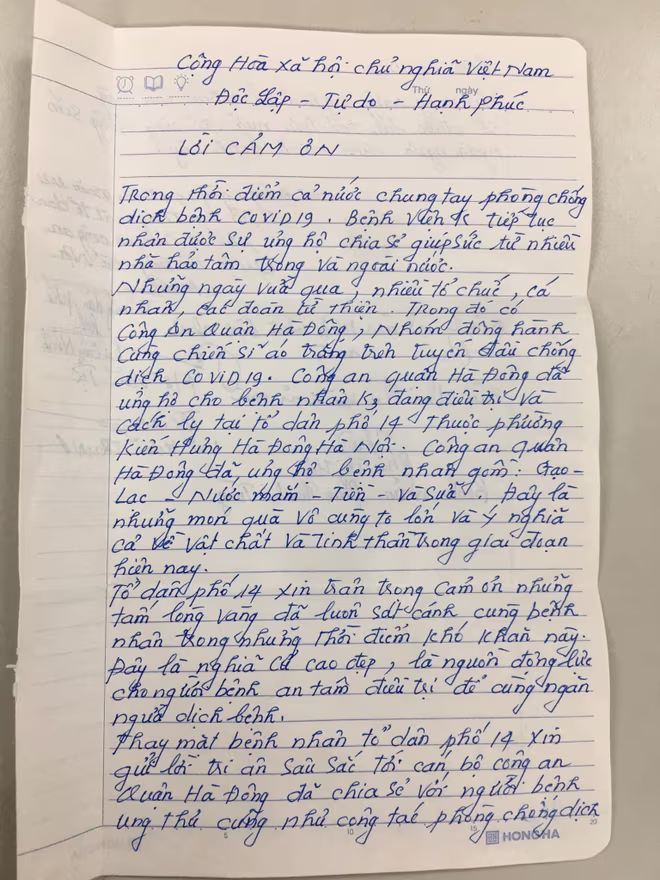 Cộng Hoà xã hội chủ nghĩa Việt Nam
Thứ ngày
Độc Lập - Tự do - Hạnh phúc
LỜI CẢM ƠN
Trong thời điểm cả nước chung tay phòng chống
dịch bệnh COVID19. Bệnh viện tiếp tục
nhận được sự ủng hộ chia sẻ giúp sức từ nhiều
nhà hảo tâm trong và ngoài nước.
Những ngày vừa qua, nhiều tổ chức, cá
nhân, các đoàn từ thiện. Trong đó có
Công An Quận Hà Đông, Nhóm đồng hành
cùng chiến sĩ áo trắng trên tuyến đầu chống
dịch COVID19. Công an quận Hà Đông đã
ủng hộ cho bệnh nhân K3 đang điều trị và
cách ly tại tổ dân phố 14 Thuộc phường
Kiến Hưng Hà Đông Hà Nội. Công an quận
Hà Đông đã ủng hộ bệnh nhân gồm: Gạo -
Lạc - Nước mắm - Tiền - và sữa. Đây là
những món quà vô cùng to lớn và ý nghĩa
cả về vật chất và tinh thần trong giai đoạn
hiện nay.
Tổ dân phố 14 xin trân trọng cảm ơn những
tấm lòng vàng đã luôn sát cánh cùng bệnh
nhân trong những thời điểm khó khăn này.
Đây là nghĩa cử cao đẹp, là nguồn động lực
cho người bệnh an tâm điều trị để cùng ngăn
ngừa dịch bệnh.
Thay mặt bệnh nhân tổ dân phố 14 xin
gửi lời tri ân sâu sắc tới cán bộ công an
Quận Hà Đông đã chia sẻ với người bệnh
ung thư cũng như công tác phòng chống dịch
5 10 15 20
HONG HA